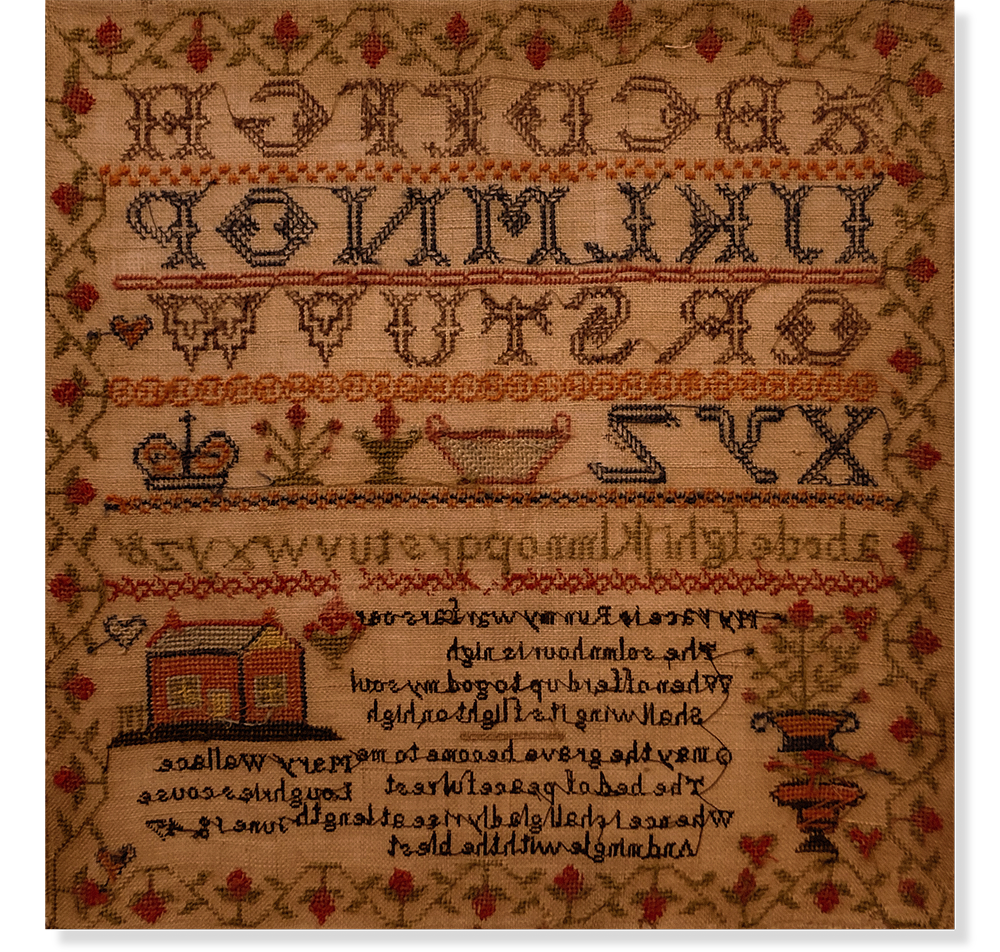 A B C D E F G H
I J K L M N O P
Q R S T U V W
X Y Z
abcdefghijklmnopqrstuvwxyz&
My race is Run my warfars oer
The solmn hour is nigh
When offerd up to god my soul
Shall wing its flight on high
O may the grave become to me
The bed of peacefull rest
Whence I shall gladly rise at length
And mingle with the blest
Mary Wallace
Loughries couse
June 18